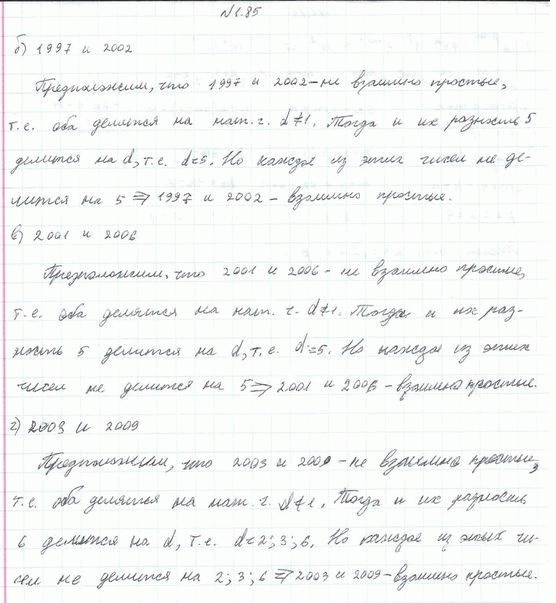 №1.85
б) 1997 и 2002
Предположим, что 1997 и 2002 - не взаимно простые,
т.е. оба делятся на нат. ч. d≠1. Тогда и их разность 5
делится на d, т.е. d=5. Но каждое из этих чисел не де-
лится на 5 ⇒ 1997 и 2002 - взаимно простые.
в) 2001 и 2006
Предположим, что 2001 и 2006 - не взаимно простые,
т.е. оба делятся на нат. ч. d≠1. Тогда и их раз-
ность 5 делится на d, т.е. d=5. Но каждое из этих
чисел не делится на 5 ⇒ 2001 и 2006 - взаимно простые.
г) 2003 и 2009
Предположим, что 2003 и 2009 - не взаимно простые,
т.е. оба делятся на нат. ч. d≠1. Тогда и их разность
6 делится на d, т.е. d=2; 3; 6. Но каждое из этих чи-
сел не делится на 2; 3; 6 ⇒ 2003 и 2009 - взаимно простые.